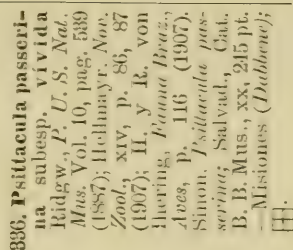 336. Psittacula passeri-
na subesp. vivida
Ridgw., P. U. S. Nat.
Mus. Vol. 10, pag. 539
(1887); Hellmayr. Nov.
Zool., xiv, p. 86, 87
(1907); H. y R. von
Ihering, Fauna Braz.,
Aves, p. 116 (1907).
Simon. Psittacula pas-
serina; Salvad., Cat.
B. B. Mus., xx, 245 pt.
—Misiones (Dabbene);